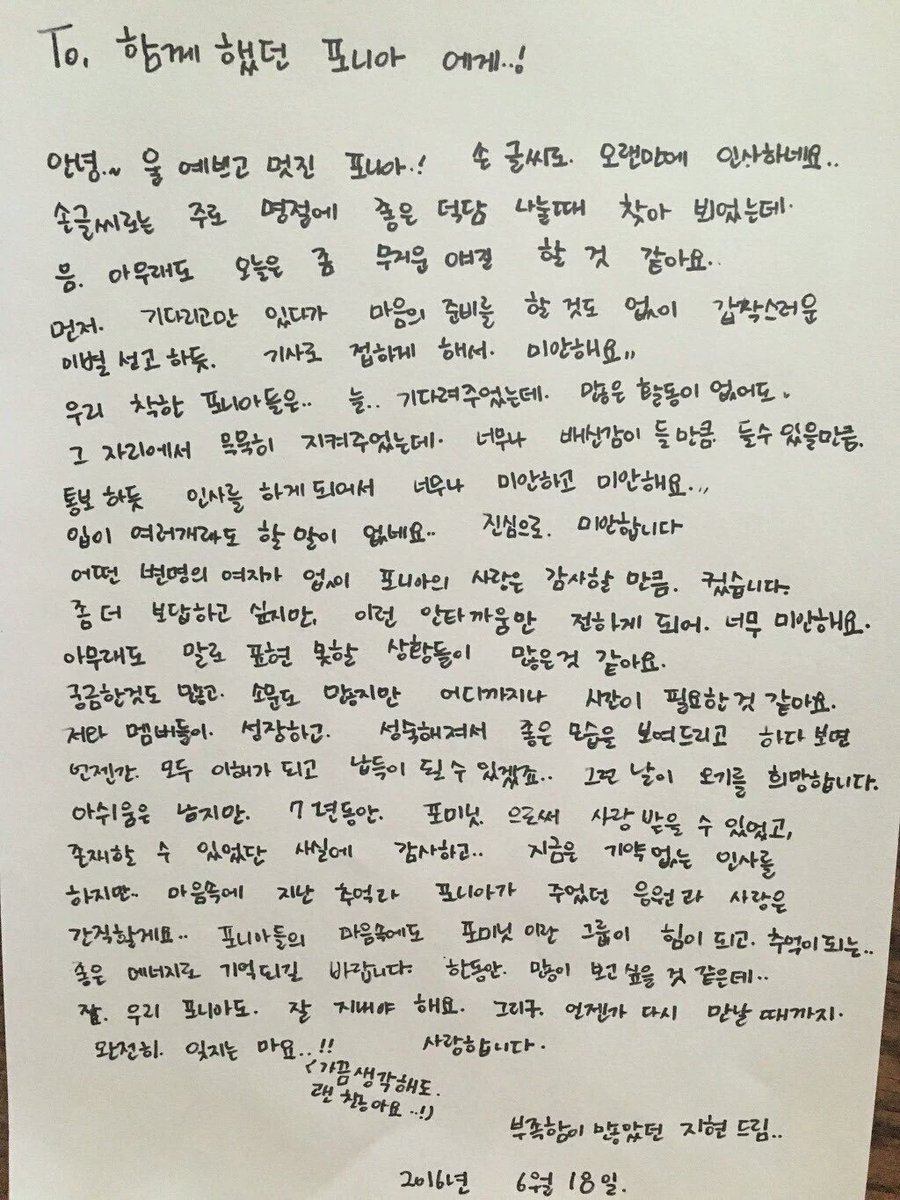 To. 함께 했던 포니아 에게..!
안녕.~ 울 예쁘고 멋진 포니아.! 손 글씨로. 오랜만에 인사하네요..
손글씨로는 주로 명절에 좋은 덕담 나눌때 찾아 뵈었는데.
음. 아무래도 오늘은 좀 무거운 얘길 할 것 같아요..
먼저. 기다리고만 있다가 마음의 준비를 할 것도 없이 갑작스러운
이별 선고 하듯. 기사로 접하게 해서. 미안해요,,
우리 착한 포니아들은.. 늘.. 기다려주었는데. 많은 활동이 없어도.
그 자리에서 묵묵히 지켜주었는데. 너무나 배신감이 들 만큼. 들수 있을만큼.
통보 하듯 인사를 하게 되어서 너무나 미안하고 미안해요...
입이 여러개라도 할 말이 없네요.. 진심으로. 미안합니다
어떤 변명의 여지가 없이 포니아의 사랑은 감사할 만큼. 컸습니다.
좀 더 보답하고 싶지만, 이런 안타까움만 전하게 되어. 너무 미안해요.
아무래도 말로 표현 못할 상황들이 많은것 같아요.
궁금한것도 많고. 소문도 많지만 어디까지나 시간이 필요한 것 같아요.
저와 멤버들이. 성장하고. 성숙해져서 좋은 모습을 보여드리고 하다 보면
언젠간. 모두 이해가 되고 납득이 될 수 있겠죠.. 그런 날이 오기를 희망합니다.
아쉬움은 남지만. 7년동안. 포미닛 으로써 사랑 받을 수 있었고,
존재할 수 있었단 사실에 감사하고.. 지금은 기약 없는 인사를
하지만.. 마음속에 지난 추억과 포니아가 주었던 응원과 사랑은
간직할게요.. 포니아들의 마음속에도 포미닛 이란 그룹이 힘이 되고. 추억이 되는..
좋은 에너지로 기억되길 바랍니다. 한동안. 많이 보고 싶을 것 같은데..
잘. 우리 포니아도. 잘 지내야 해요. 그리구. 언젠가 다시 만날 때까지.
완전히. 잊지는 마요..!! 사랑합니다.
(가끔 생각해도.
괜찮아요..!)
부족함이 많았던 지현 드림..
2016년 6월 18일.